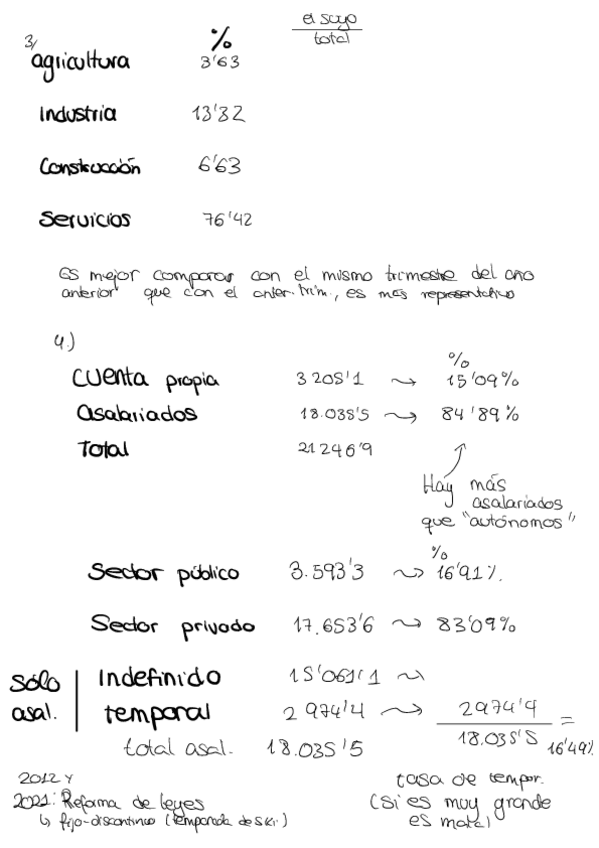 el suyo
total
3/ %
agricultura 3'63
Industria 13'32
Construcción 6'63
Servicios 76'42
Es mejor comparar con el mismo trimestre del año
anterior que con el anter. trim., es más representativo
4.)
%
cuenta propia 3 205'1 → 15'09%
asalariados 18.035'5 → 84'89%
Total 21 246'9
Hay más
asalariados
que "autónomos"
%
Sector público 3.593'3 → 16'91%.
Sector privado 17.653'6 → 83'09%
sólo
asal.
Indefinido 15'061'1 →
temporal 2 974'4 → 2974'4
total asal. 18.035'5 18.035'5 = 16'49%
2012 y
2021: Reforma de leyes
↳ fijo-discontinuo (temporada de ski)
tasa de tempor.
(si es muy grande
es mala)